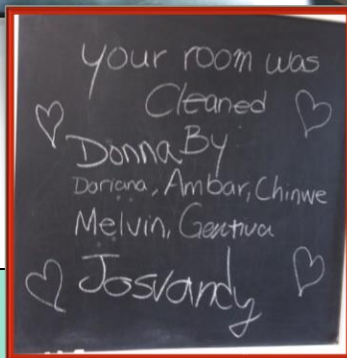 your room was
Cleaned
By
Donna
Dariana, Ambar, Chinwe
Melvin, Gentiva
Josvandy